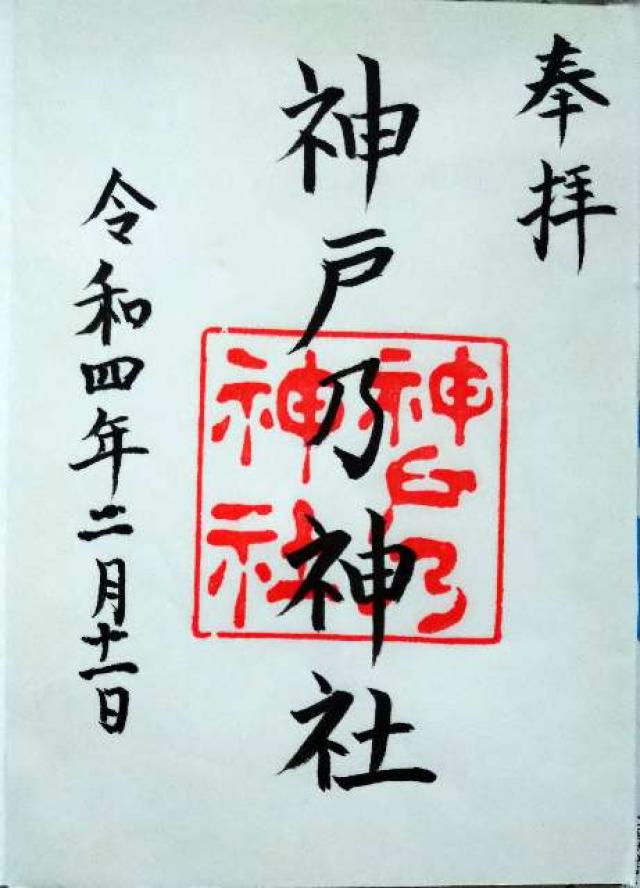 奉拝
神戸乃神社
神戸乃
神社
令和四年二月十一日